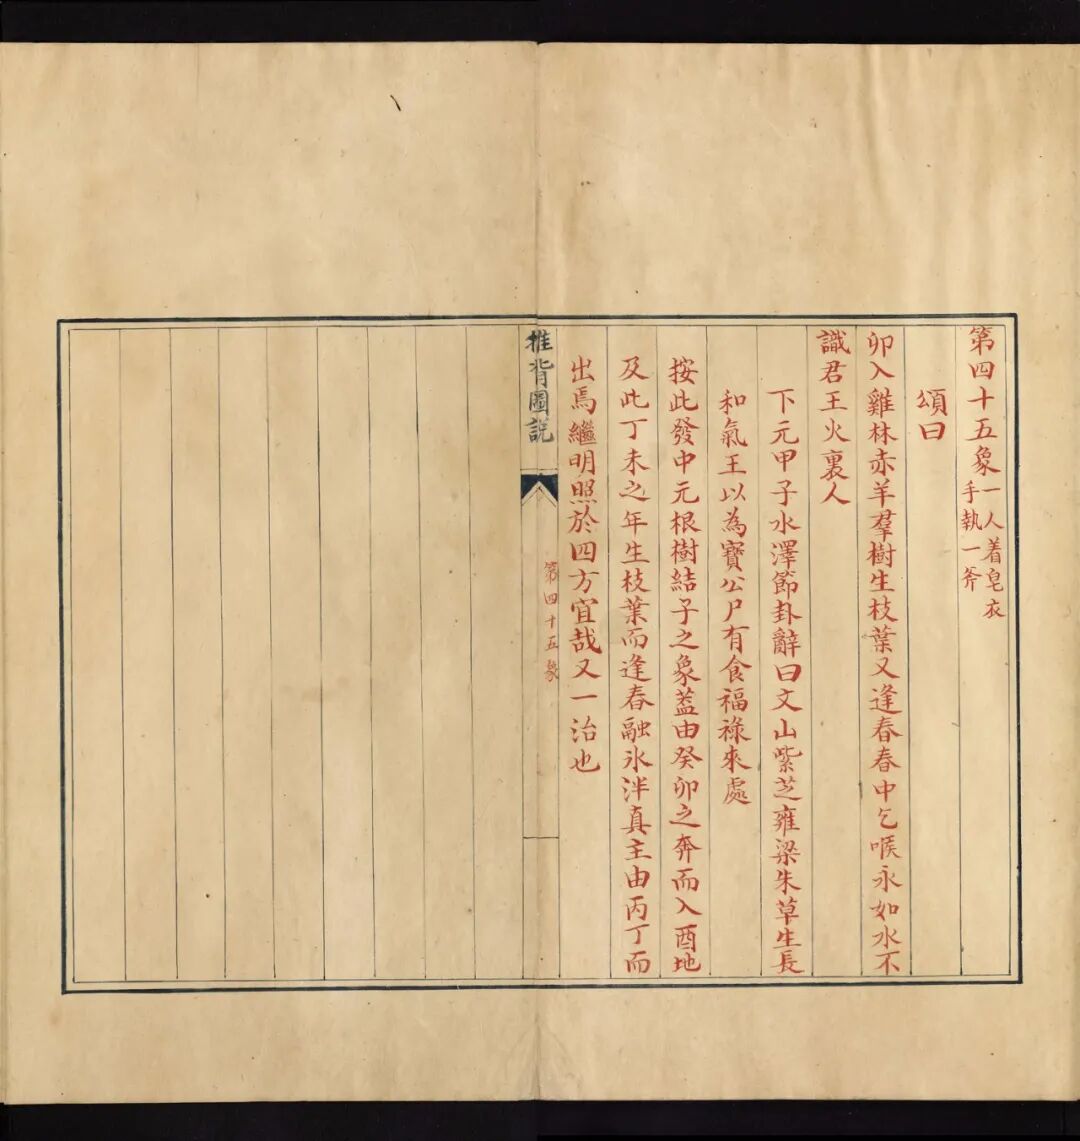 第四十五象
一人着皂衣
手執一斧
頌曰
卯入雞林赤羊羣樹生枝葉又逢春春中乞喉永如水不
識君王火裏人
下元甲子水澤節卦辭曰文山紫芝雍梁朱草生長
和氣王以為寶公尸有食福祿來處
按此發中元根樹結子之象葢由癸卯之奔而入酉地
及此丁未之年生枝葉而逢春融氷泮真主由丙丁而
出焉繼明照於四方宜哉又一治也
推背圖說
第四十五象